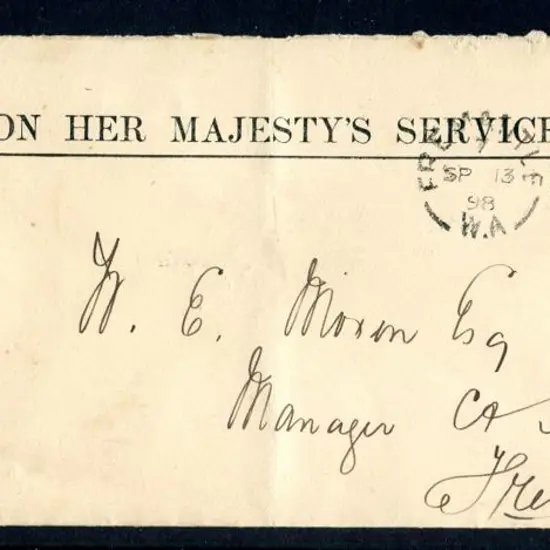 ON HER MAJESTY'S SERVICE
FRE
SP 13
98
W.A
W. E. Moxon Esq
Manager
Fre